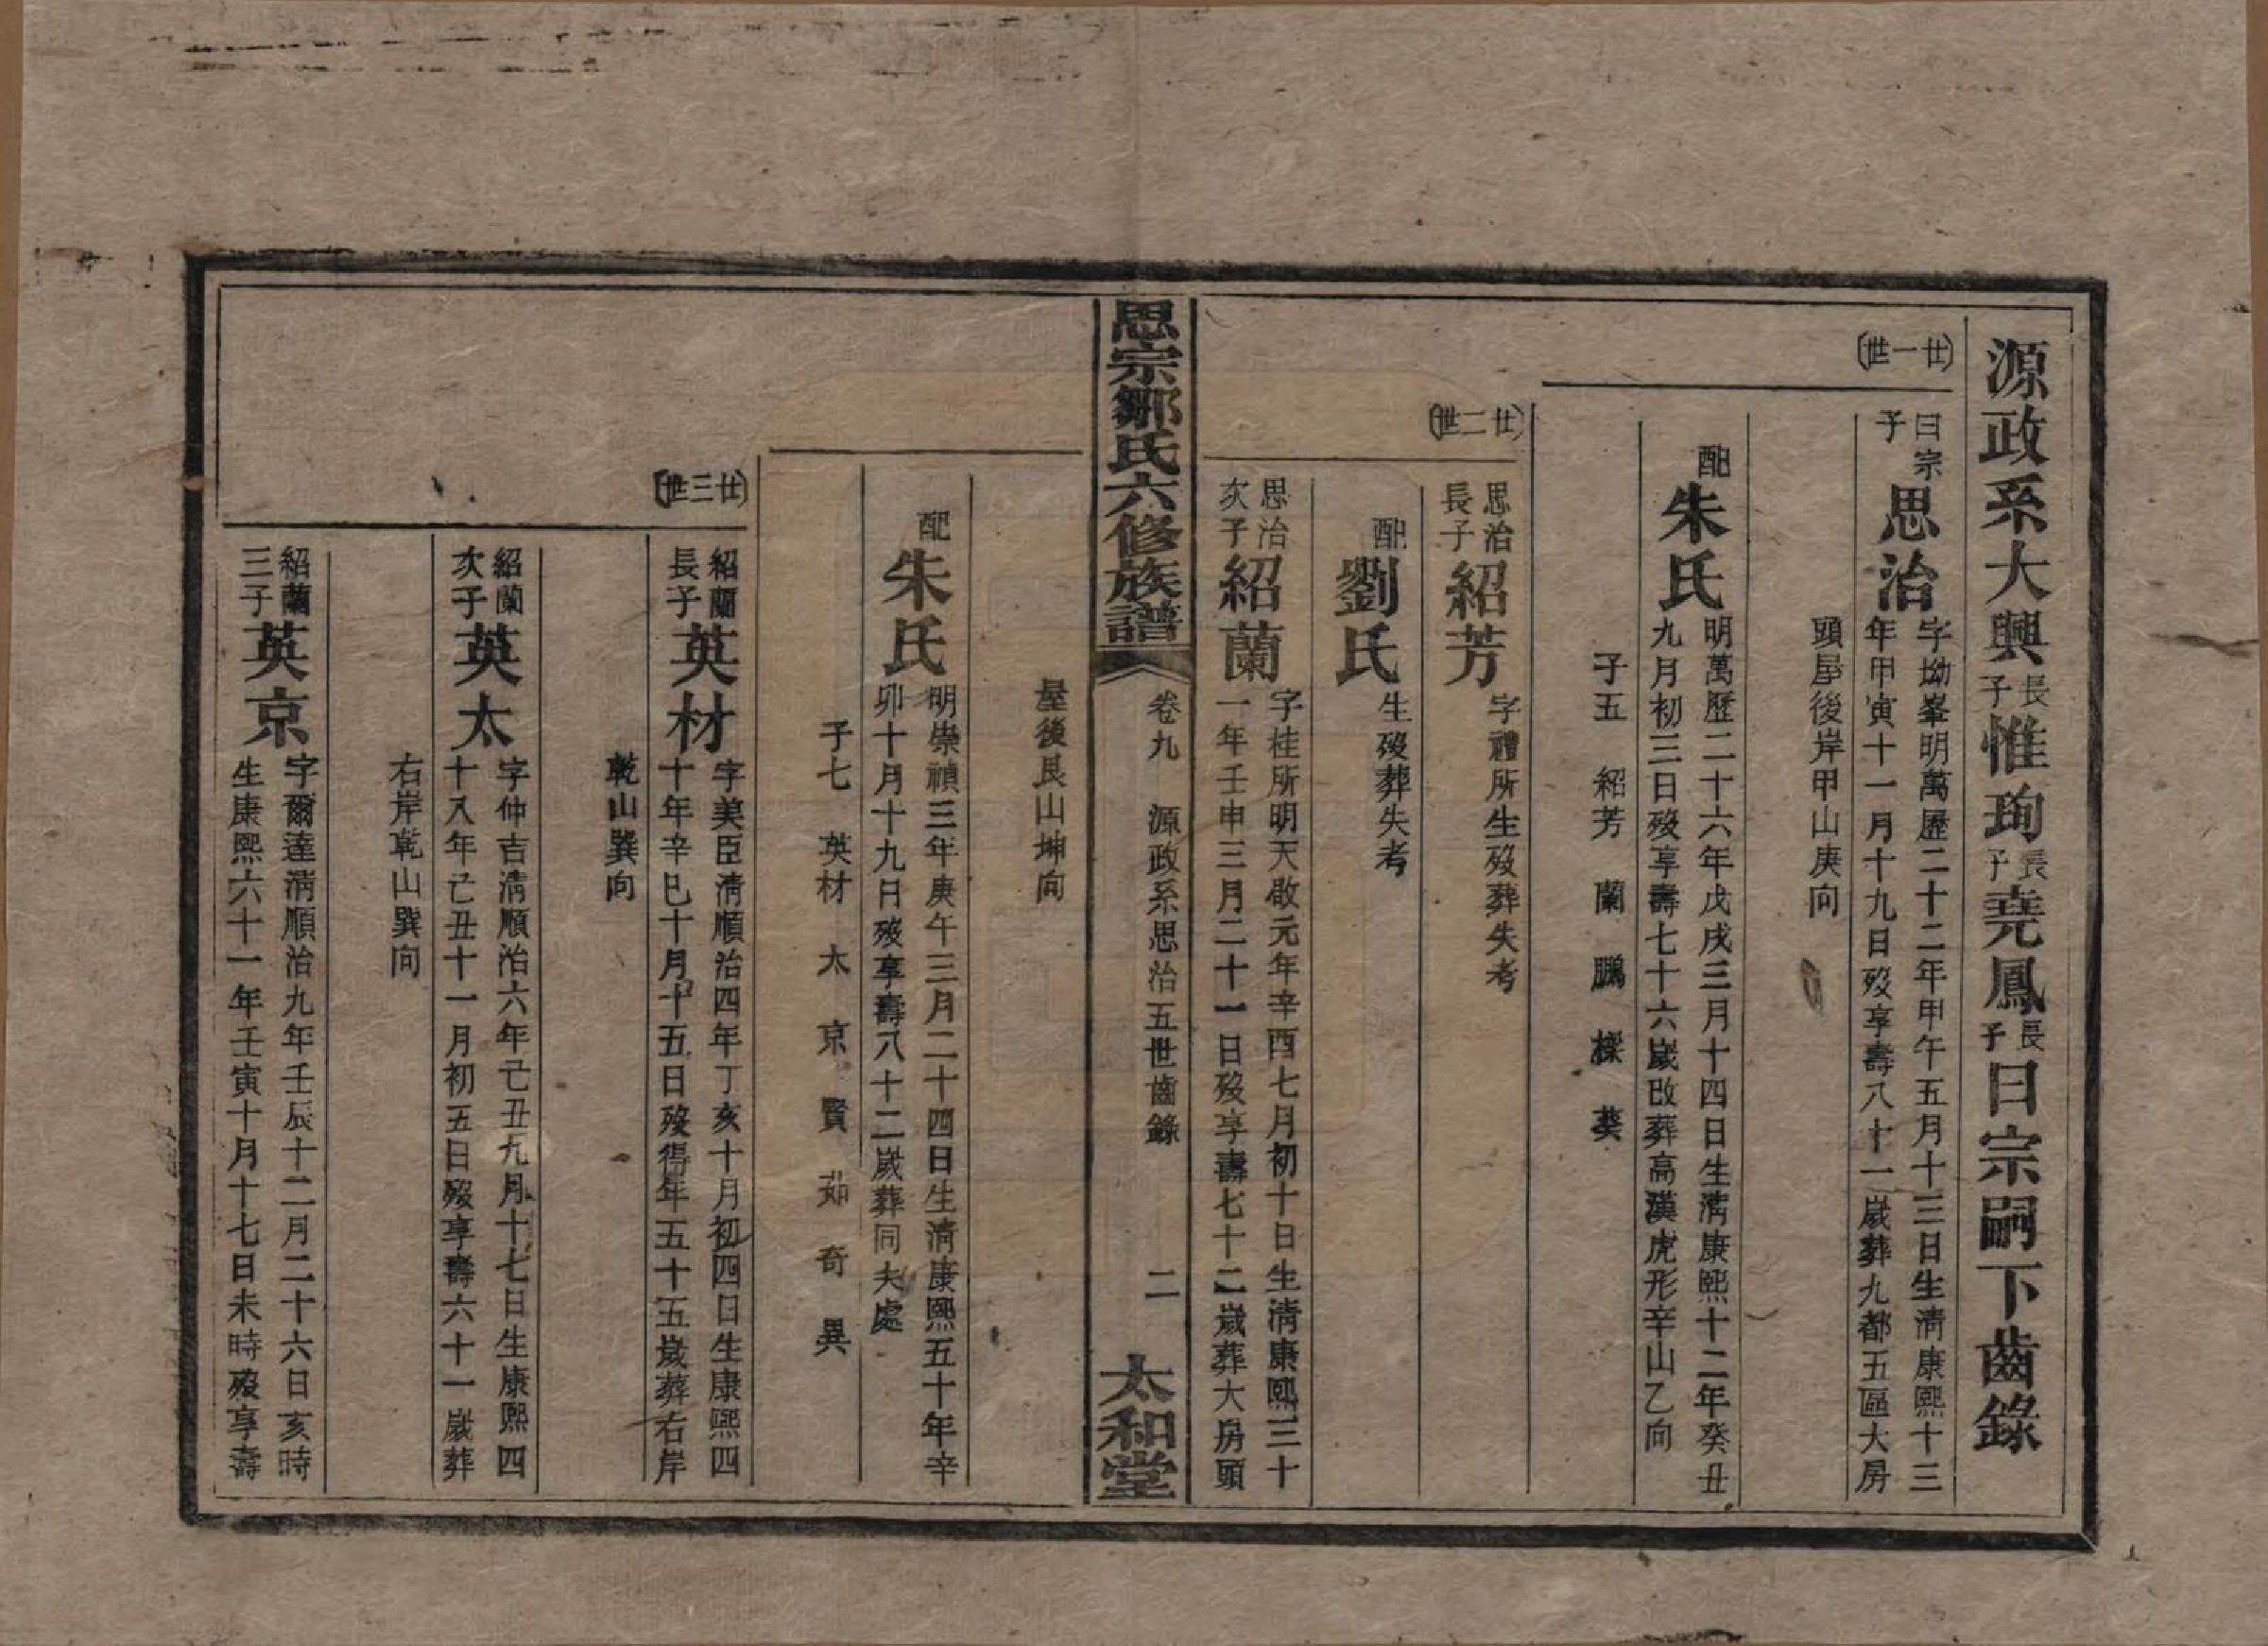 源政系大興長子惟珣長子堯鳳長子曰宗嗣下齒錄
廿一世
曰宗子
思治
字坳峯明萬歷二十二年甲午五月十三日生清康熙十三
年甲寅十一月十九日歿享壽八十一歲葬九都五區大房
頭屋後岸甲山庚向
配朱氏
明萬歷二十六年戊戌三月十四日生清康熙十二年癸丑
九月初三日歿享壽七十六歲改葬高漢虎形辛山乙向
子五 紹芳 蘭 鵬 檪 葵
廿二世
思治長子
紹芳
字禮所生歿葬失考
配劉氏
生歿葬失考
思治次子
紹蘭
字桂所明天啟元年辛酉七月初十日生清康熙三十
一年壬申三月二十一日歿享壽七十二歲葬大房頭
思宗鄒氏六修族譜
卷九 源政系思治五世齒錄 二
太和堂
屋後艮山坤向
配朱氏
明崇禎三年庚午三月二十四日生清康熙五十年辛
卯十月十九日歿享壽八十二歲葬同夫處
子七 英材 太 京 賢 茹 奇 異
廿三世
紹蘭長子
英材
字美臣清順治四年丁亥十月初四日生康熙四
十年辛巳十月十五日歿得年五十五歲葬右岸
乾山巽向
紹蘭次子
英太
字仲吉清順治六年己丑九月十七日生康熙四
十八年己丑十一月初五日歿享壽六十一歲葬
右岸乾山巽向
紹蘭三子
英京
字爾達清順治九年壬辰十二月二十六日亥時
生康熙六十一年壬寅十月十七日未時歿享壽